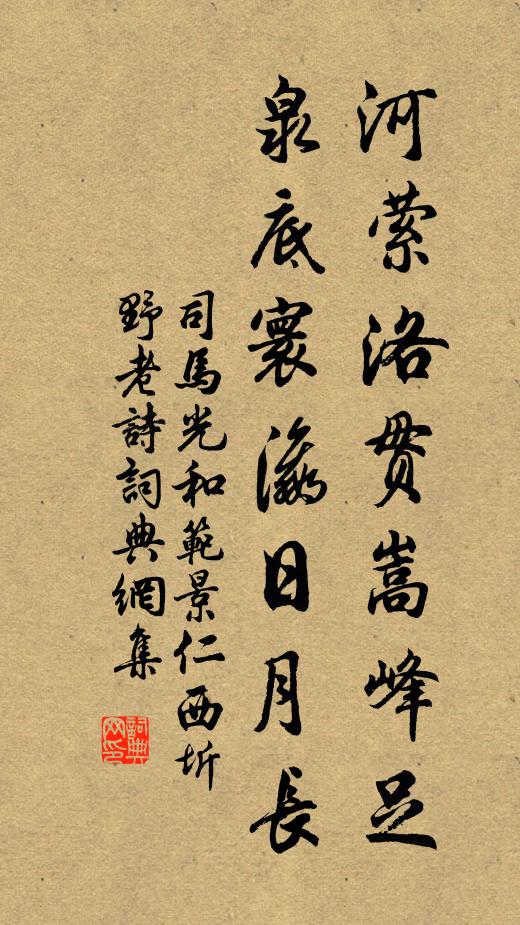 河萦洛贯嵩峰足
泉底寰瀛日月長
司馬光和範景仁西圻
野老詩詞典網集
詞典网印